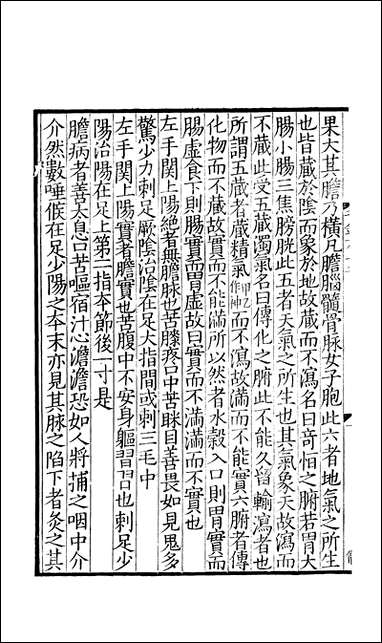 果大其膽乃橫凡膽腦髓骨脉女子胞此六者地氣之所生
也皆藏於陰而象於地故藏而不瀉名曰奇恒之腑若胃大
腸小腸三焦膀胱此五者天氣之所生也其氣象天故瀉而
不藏此受五藏濁氣名曰傳化之腑此不能久留輸瀉者也
所謂五藏者藏精氣而不瀉故滿而不能實六腑者傳
化物而不藏故實而不能滿所以然者水穀入口則胃實而
腸虛食下則腸實而胃虛故曰實而不滿滿而不實也
左手關上陽絕者無膽脉也苦膝疼口中苦眯目善畏如見鬼多
驚少力刺足厥陰治陰在足大指間或刺三毛中
左手關上陽實者膽實也苦腹中不安身軀習習也刺足少
陽治陽在足上第二指本節後一寸是
膽病者善太息口苦嘔宿汁心澹澹恐如人將捕之咽中介
介然數唾候在足少陽之本末亦見其脉之陷下者灸之其